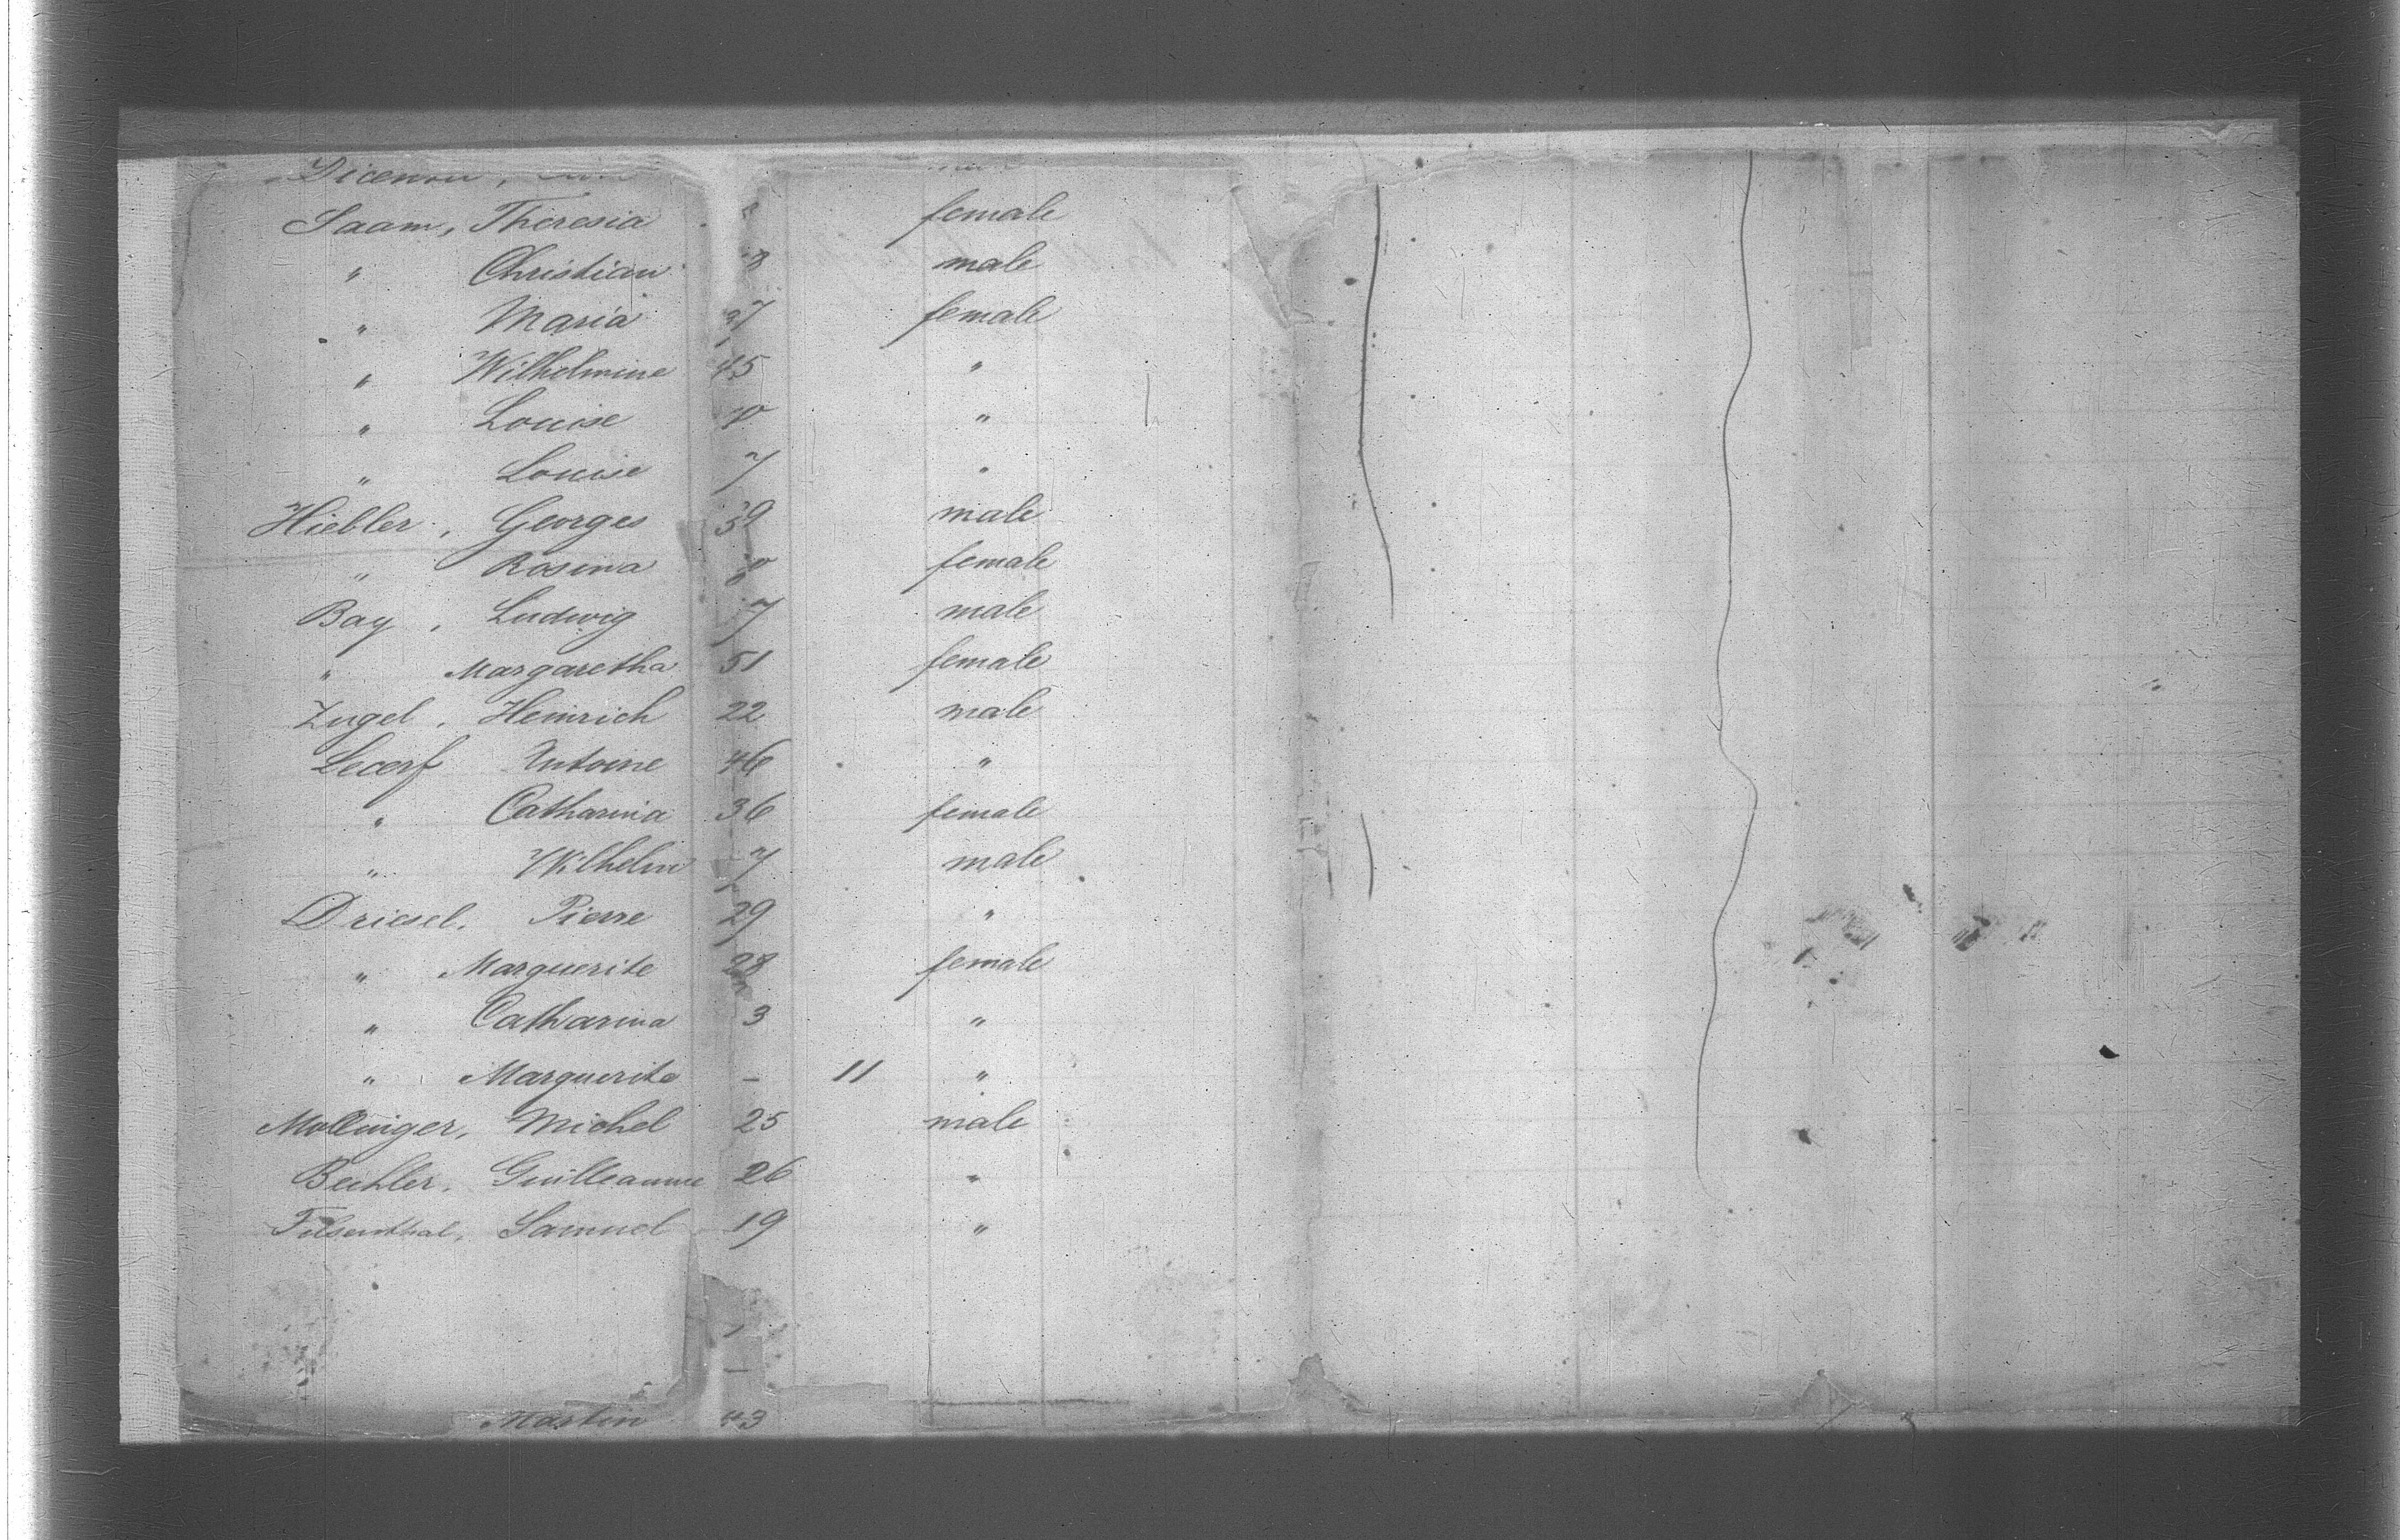 Saam, Theresia female
" Christian 8 male
" Maria 27 female
" Wilhelmine 45 "
" Louise "
" Louise 7 "
Hiebler, Georges 39 male
" Rosina female
Bay, Ludwig 7 male
" Margaretha 51 female
Zugel, Heinrich 22 male
Lecerf Antoine 46 "
" Catharina 36 female
" Wilhelm 7 male
Driesel, Pierre 29 "
" Marguerite 28 female
" Catharina 3 "
" Marguerite – 11 "
Mollinger, Michel 25 male
Bechler, Guilleaume 26 "
Felsenthal, Samuel 19 "
Martin 43